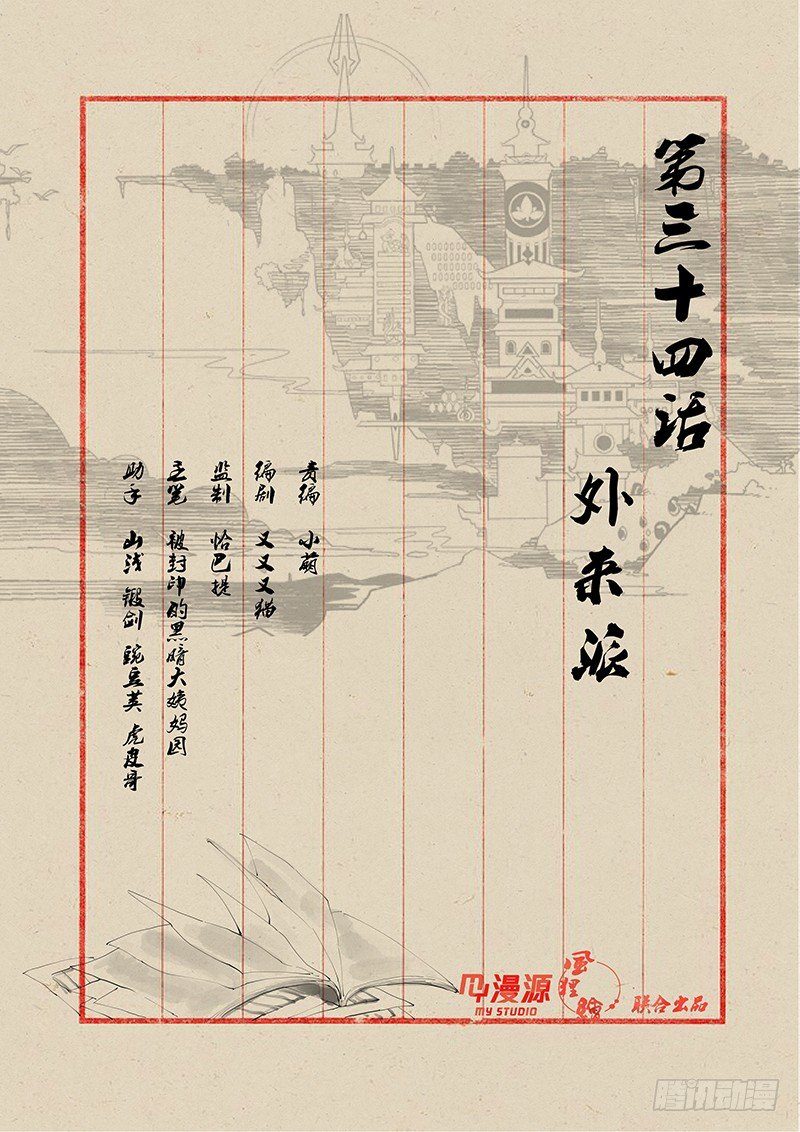 第三十四话
外来派
责编 小萌
编剧 又又又猫
监制 恰巴提
主笔 被封印的黑暗大姨妈园
助手 山浅 锻剑 豌豆荚 虎皮哥
漫源
MY STUDIO
联合出品
腾讯动漫